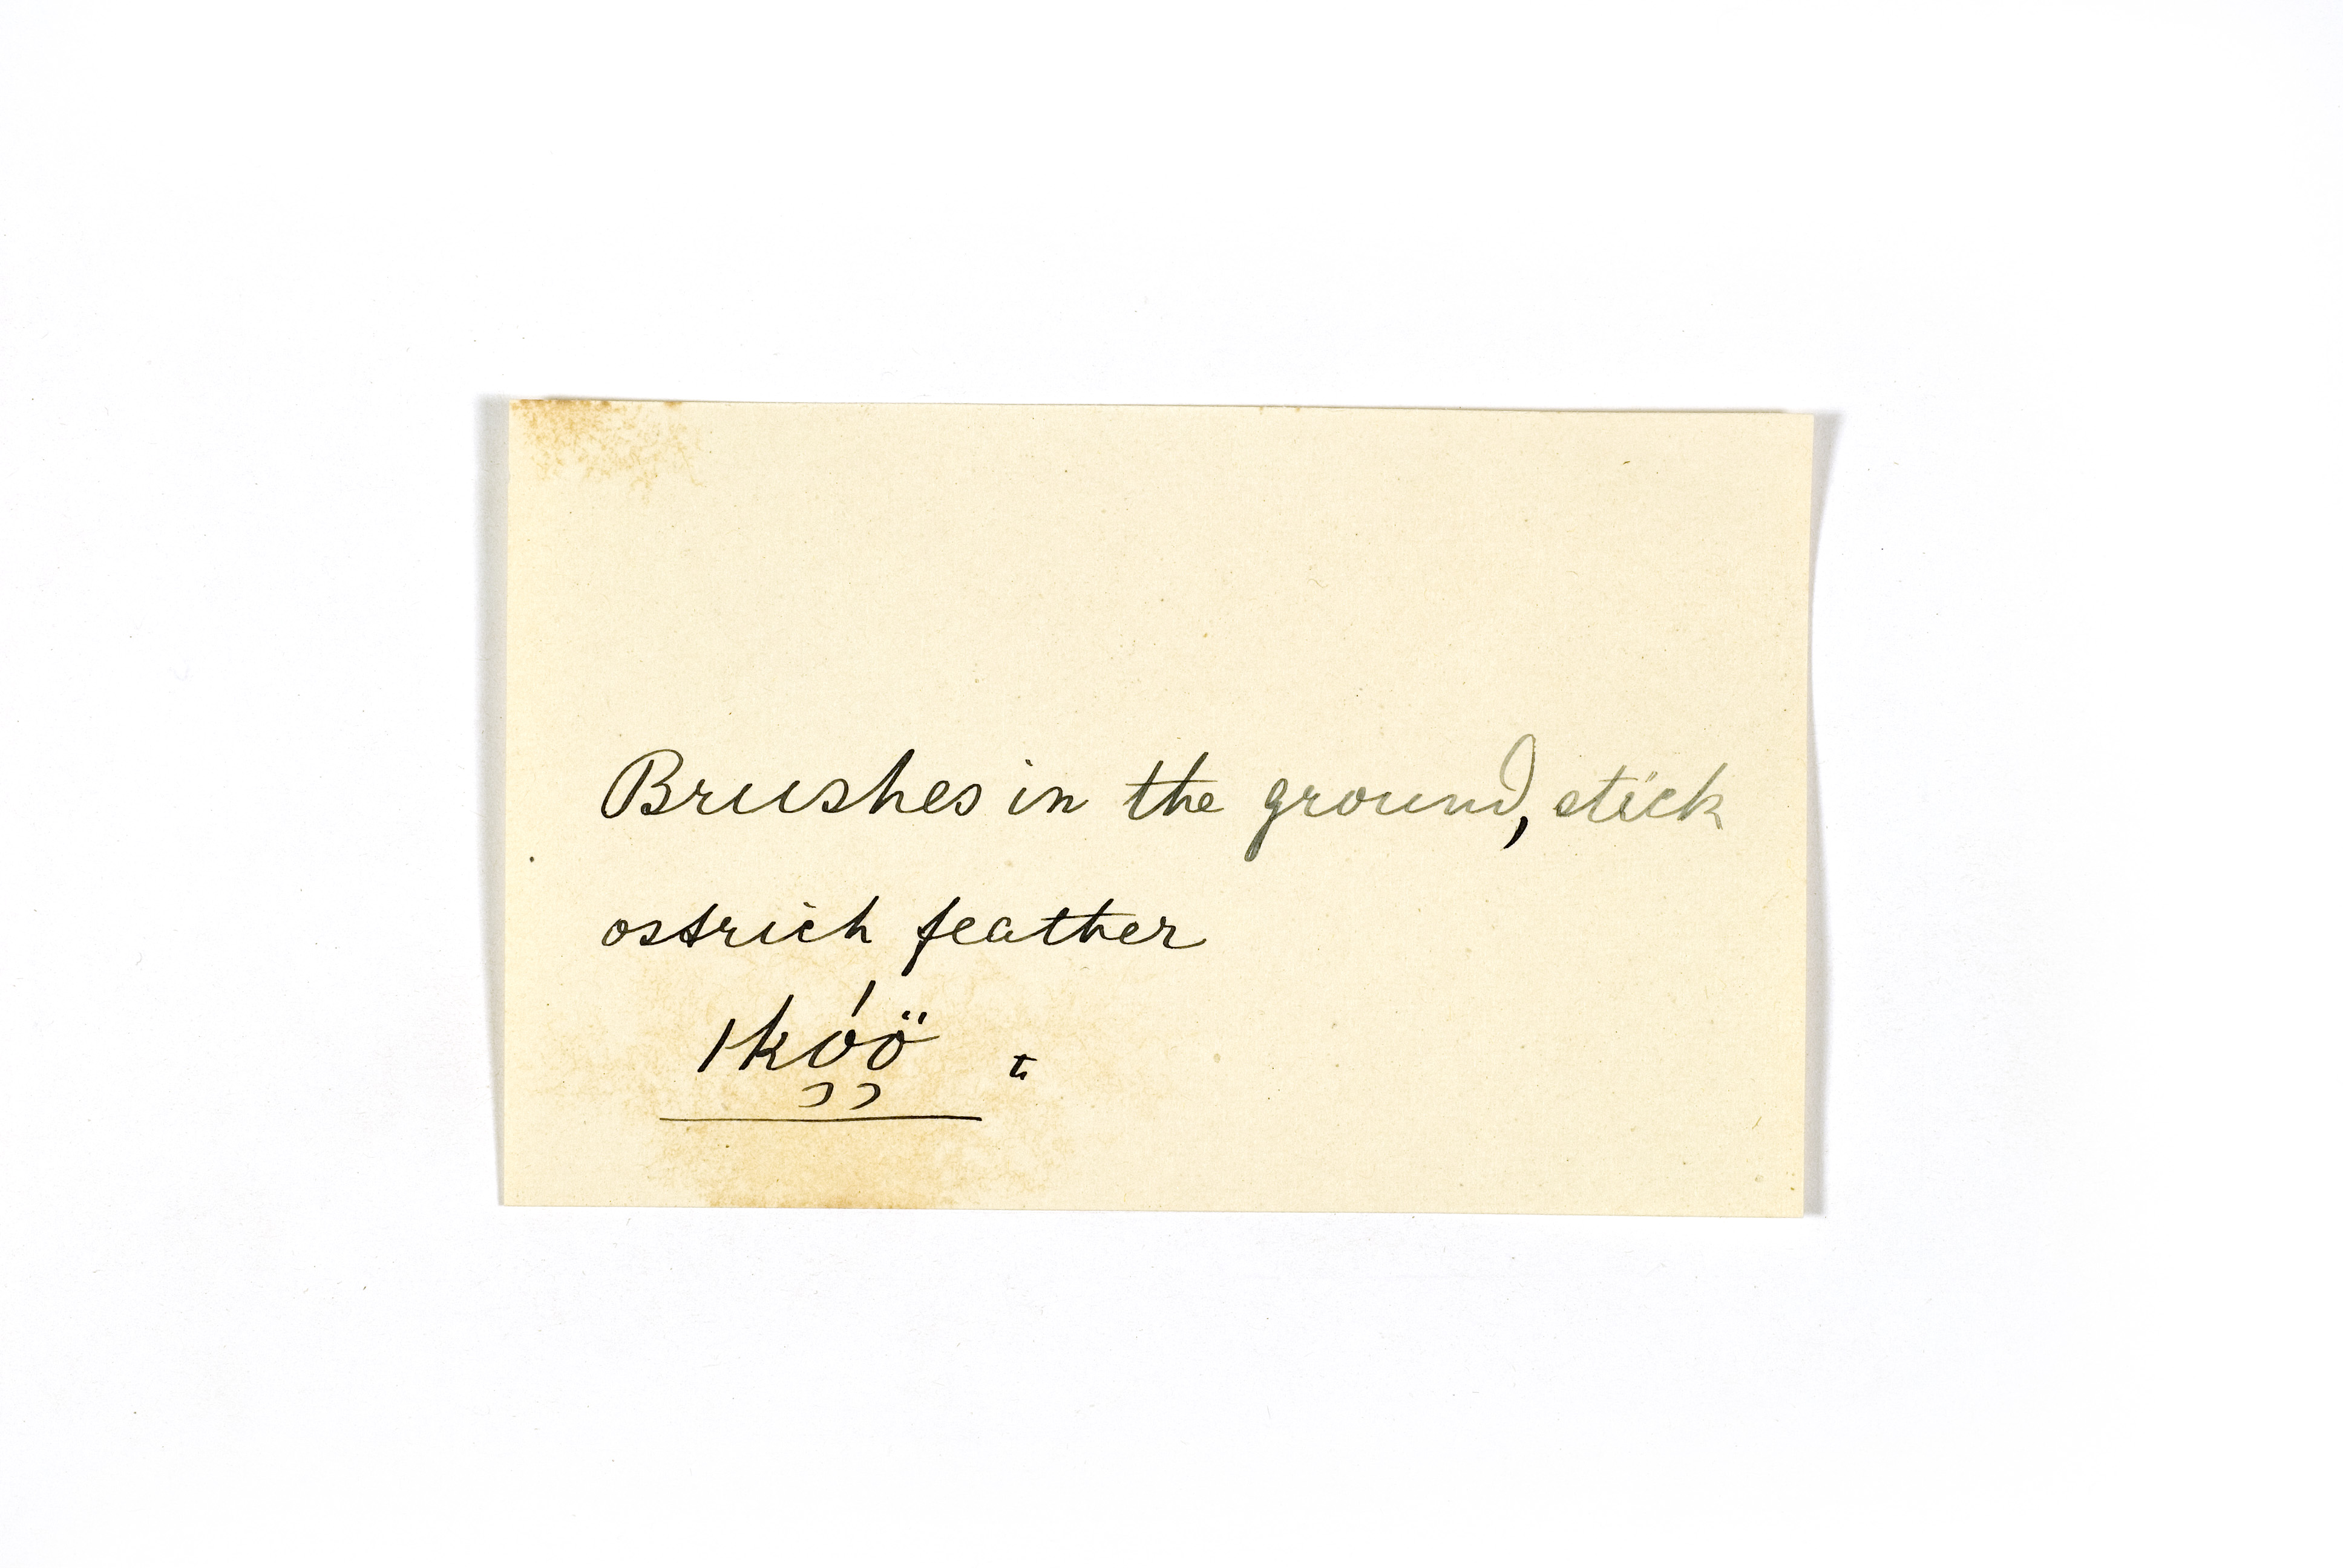 Brushes in the ground, stick
ostrich feather
ǀkóö t.